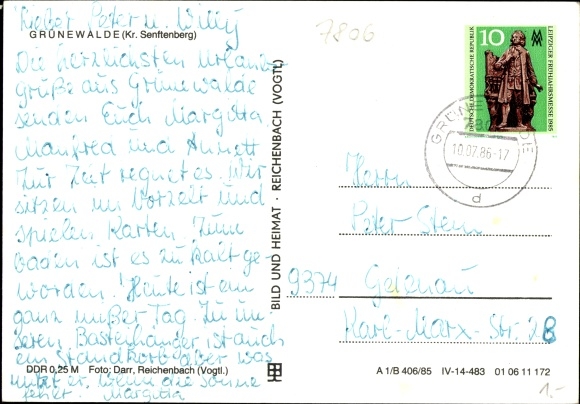 Lieber Peter u. Willy
GRÜNEWALDE (Kr. Senftenberg)
Die herzlichsten Urlaubs-
grüße aus Grünewalde
senden Euch Margitta
Manfred und Annett
Zur Zeit regnet es. Wir
sitzen im Vorzelt und
spielen Karten. Zum
baden ist es zu kalt ge-
worden. Heute ist ein
ganz mußer Tag. Zu un
seren Bastenhander ist auch
ein Standkorb aber was
nutzt er, wenn die Sonne
fehlt. Margitta
DDR 0,25 M Foto: Darr, Reichenbach (Vogtl.)
BILD UND HEIMAT · REICHENBACH (VOGTL)
7806
10
DEUTSCHE DEMOKRATISCHE REPUBLIK
LEIPZIGER FRÜHJAHRSMESSE 1985
10.07.86-17
d
Herrn
Peter Stein
9374 Gelenau
Karl-Marx-Str. 28
A 1/B 406/85 IV-14-483 01 06 11 172
1.-